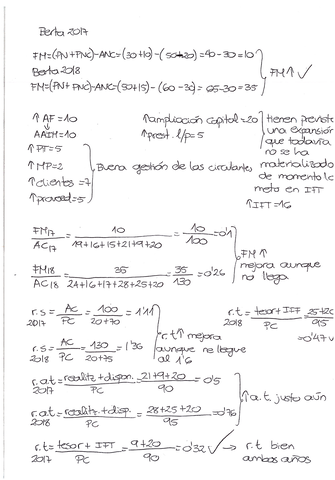 Berta 2017
FM=(PN+PNC)-ANC=(30+10)-(50+20)=40-30=10
Berta 2018
FM=(PN+PNC)-ANC=(50+15)-(60-30)=65-30=35
FM↑ ✓
↑AF=10
AAIM=10
↑PT=5
↑MP=2
↑clientes=7
↑proveed=5
Buena gestión de las circulantes
↑ampliación capital=20
↑prest. l/p=5
tienen previsto
una expansión
que todavía
no se ha
materializado
de momento lo
meto en IFT
↑IFT=16
FM17/AC17 = 10/(19+16+15+21+9+20) = 10/100 = 0'1
FM18/AC18 = 35/(24+16+17+28+25+20) = 35/130 = 0'26
FM↑
mejora aunque
no llega
r.s 2017 = AC/PC = 100/(20+70) = 1'11
r.s 2018 = AC/PC = 130/(20+75) = 1'36
r.t↑ mejora
aunque no llegue
al 1'6
r.t 2018 = tesor+IFT/PC = 25+20/95
=0'47
r.a.t 2017 = realitz+dispon./PC = 21+9+20/90 = 0'5
r.a.t 2018 = realitz+disp./PC = 28+25+20/95 = 0'76
↑a.t. justo aún
r.t 2017 = tesor+IFT/PC = 9+20/90 = 0'32 ✓ → r.t bien
ambos años